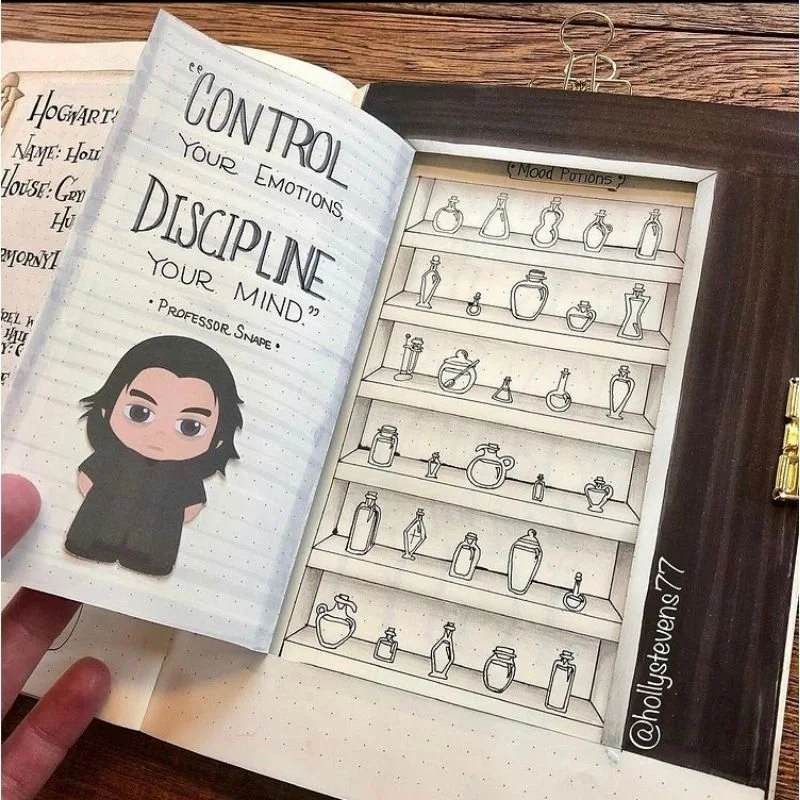 HOGWARTS
NAME:
HOUSE:
"CONTROL
YOUR EMOTIONS,
DISCIPLINE
YOUR MIND."
• PROFESSOR SNAPE •
Mood Potions
@hollystevens77